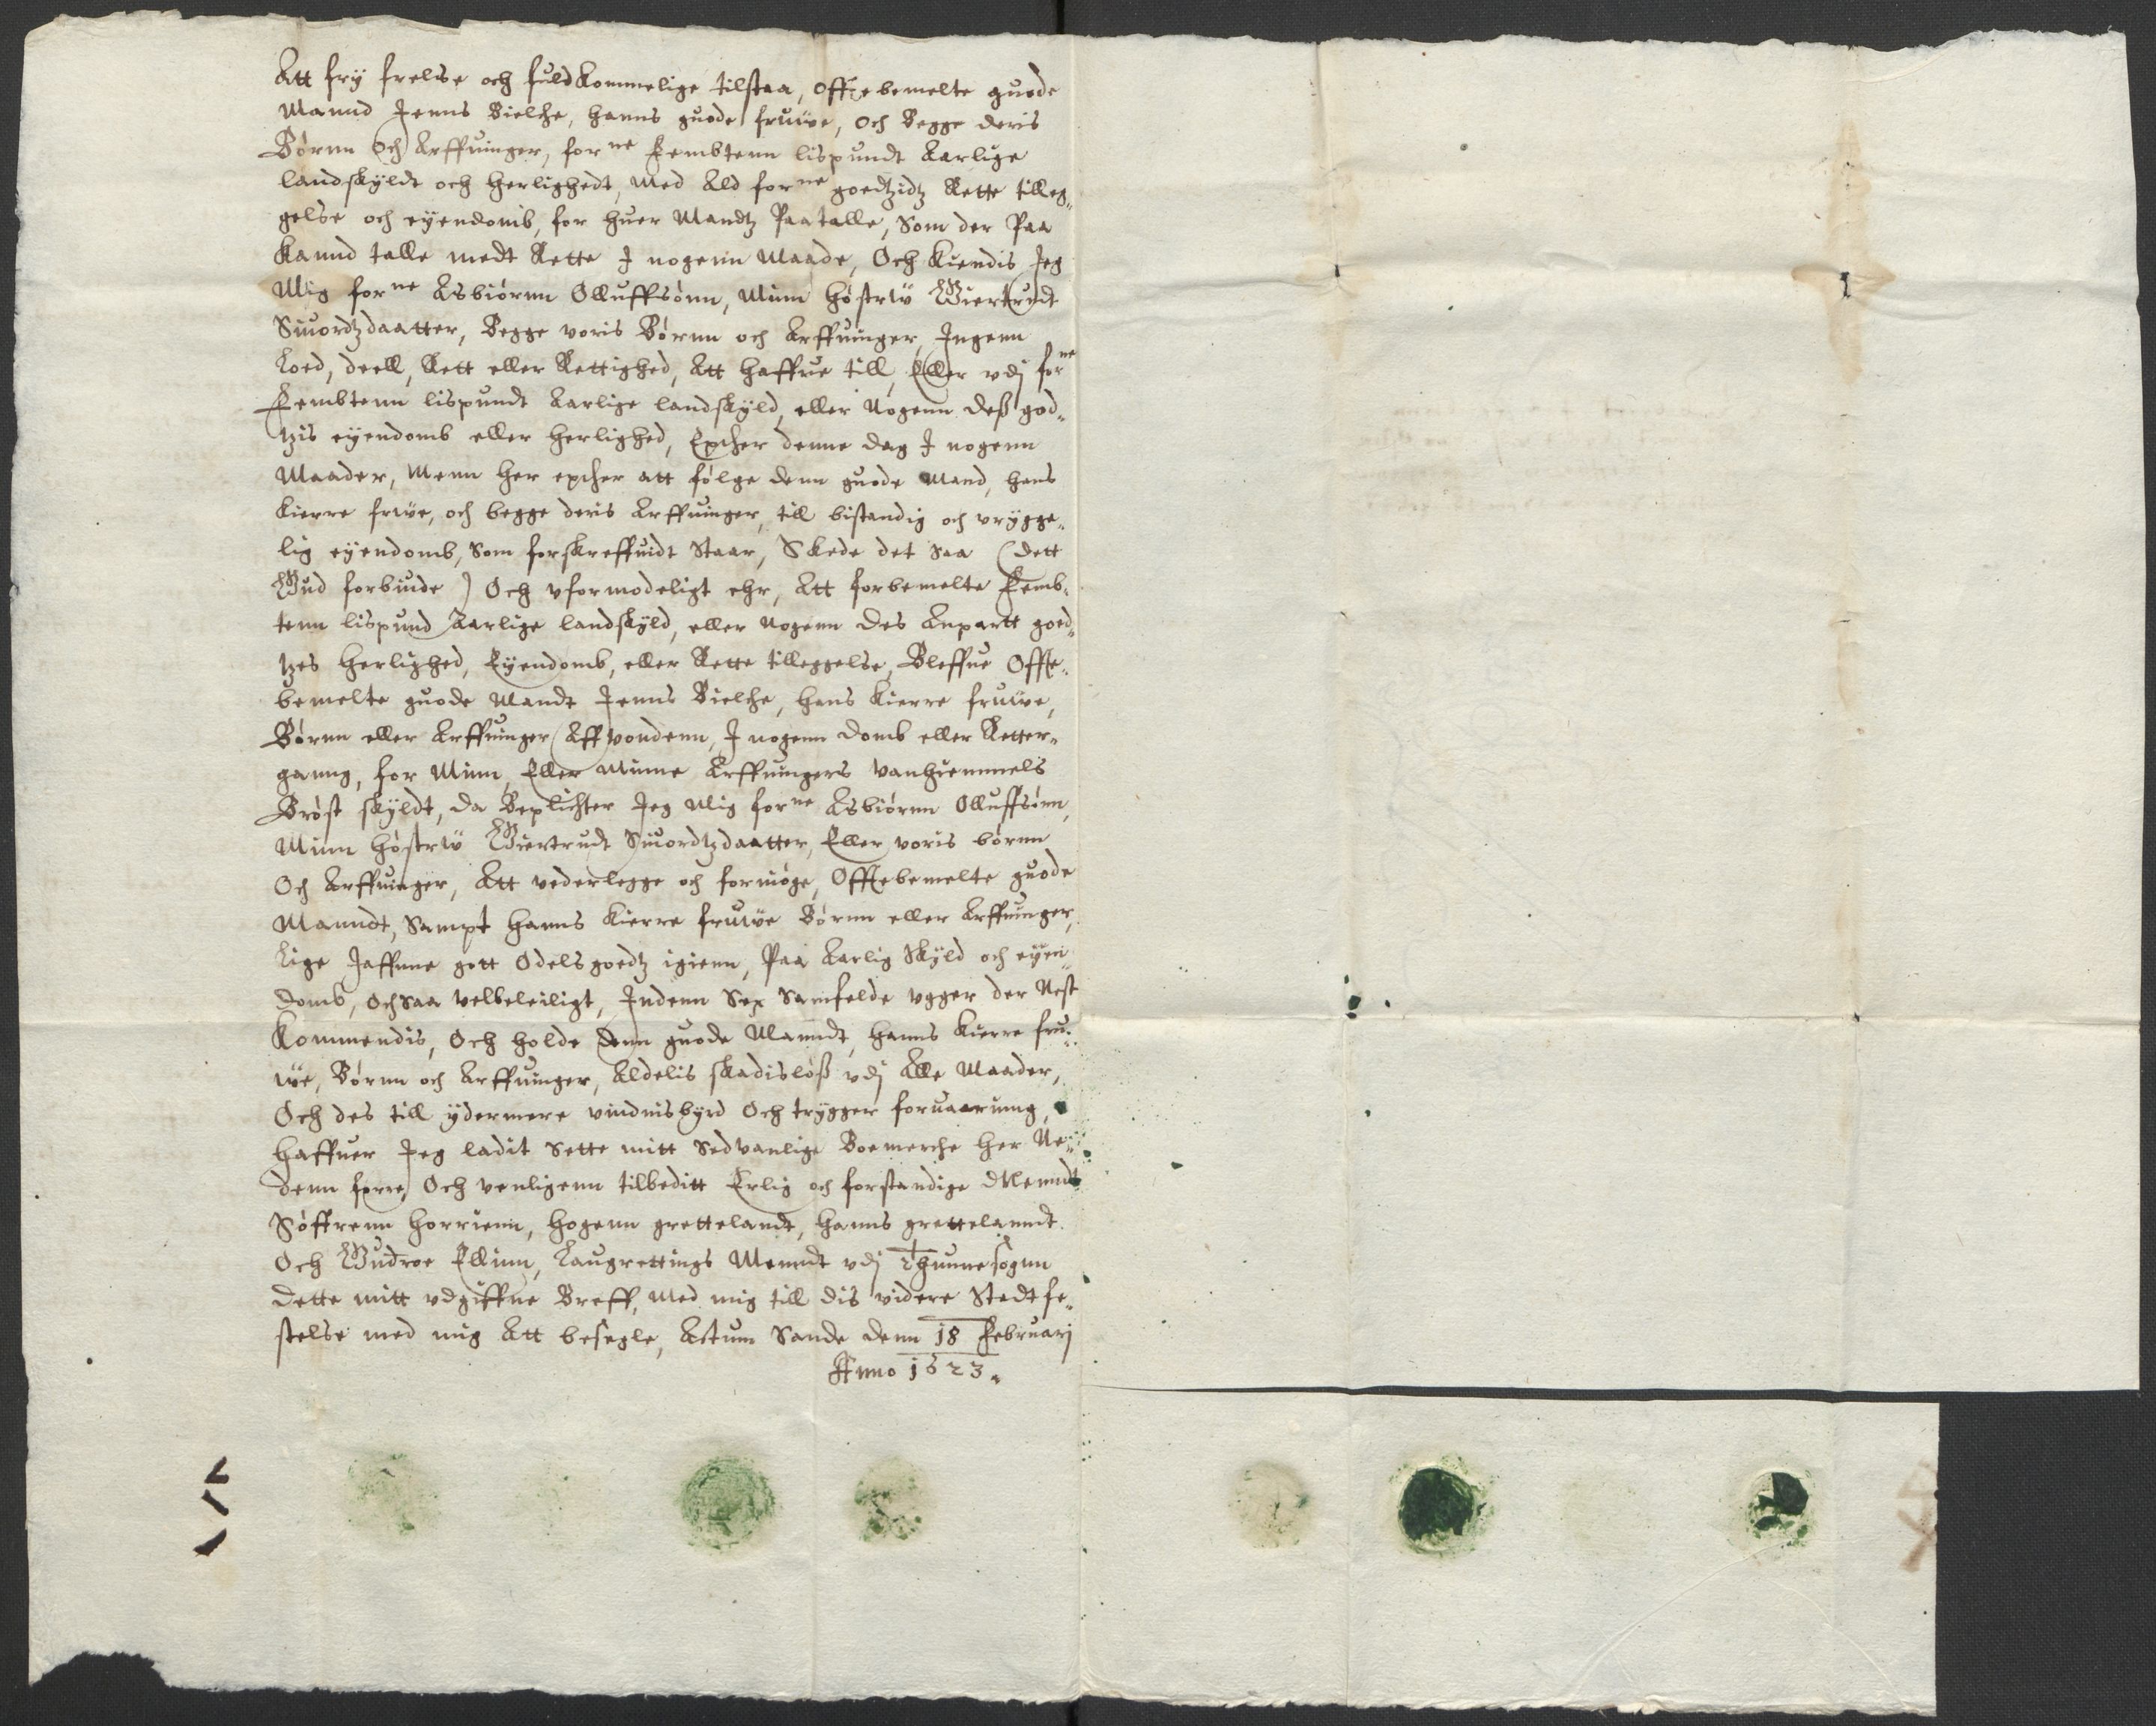 Att fry frelse och fuldkommelige tilstaa, offtebemelte guode
Mannd Jenns Bielche, hanns guode fruwe, och Begge deris
Børnn och Arffuinger, forne Fembtenn lispundt Aarlige
landskyldt och herlighedt, med Ald forne goedtzidtz Rette tilleg„
gelse och eyendomb, for huer Mandtz Paatalle, Som der Paa
Kannd talle medt Rette J nogenn Maade, Och Kiendis Jeg
Mig forne Asbiørnn Olluffsønn, Minn høstrw Giertrudt
Siuordtzdaatter, Begge voris Børnn och Arffuinger, Jngenn
Loed, deell, Rett eller Rettighed, Att haffue till, Eller vdj forne
Fembtenn lispundt Aarlige landskyld, eller Nogenn deß god„
tzis eyendomb eller herlighed, Epther denne dag J nogenn
Maader, Menn her epther att følge denn guode Mand, hans
Kierre frwe, och begge deris Arffuinger, till bistandig och vrygge„
lig eyendomb, Som forskreffuidt Staar, Skede det saa (dett
Gud forbiude) Och vformodeligt ehr, Att forbemelte Femb„
tenn lispund Aarlige landskyld, eller Nogenn des Anpartt goed„
tzes herlighed, Eyendomb, eller Rette tilleggelse, Bleffue Offte„
bemelte guode Mandt Jenns Bielche, hans Kierre fruwe,
Børnn eller Arffuinger Aff vondenn, J nogenn domb eller Retter„
ganng, for Minn, Eller Minne Arffuingers vanhiemmels
Brøst skyldt, da Beplichter Jeg Mig forne Asbiørnn Olluffsønn,
Minn høstrw Giertrudt Siuordtzdaatter, Eller voris børnn
Och Arffuinger, Att vederlegge och fornøge, Offtebemelte guode
Manndt, Sampt hanns Kierre fruwe Børnn eller Arffuinger,
Lige Jaffnne gott Odelsgoedtz igienn, Paa Aarlig Skyld och eyen„
domb, Och saa velbeleiligt, Jndenn Sex Samfelde vgger der Nest
Kommendis, Och holde denn guode Manndt, hanns Kierre fru„
we, Børnn och Arffuinger, Aldelis skadisløß vdj Alle Maader,
Och des till ydermere vindnisbyrd Och trygger foruaarinng,
haffuer Jeg ladit Sette mitt Sedvanlige Boemerche her Ne„
denn forre, Och venligenn tilbeditt Erlig och forstandige Mennd
Søffrenn horrienn, hogenn grettelandt, hanns grettelanndt
Och Gudroe Ellinn, Laugrettings Menndt vdj Thunne sognn
dette mitt vdgiffne Breff, Med mig till dis videre Stadtfe„
stelse med mig Att besegle, Actum Sande denn 18 Februarj
Anno 1623.